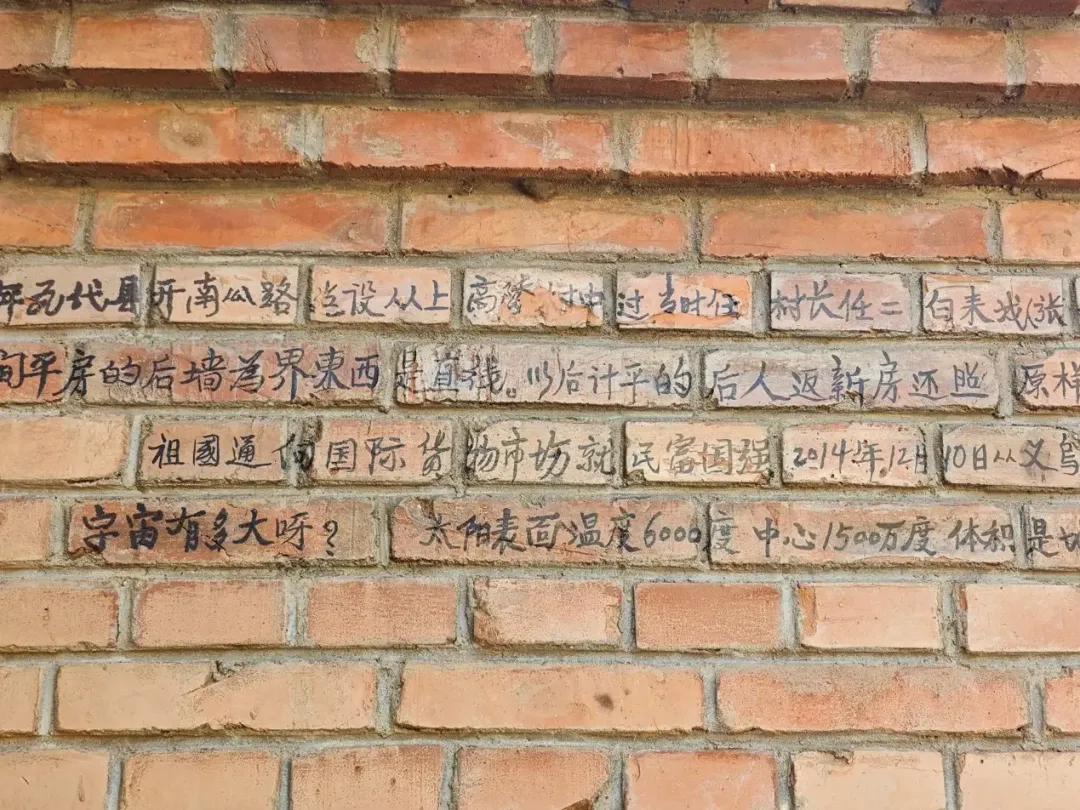 瓦代县开南公路当设从上高 村中过当时任村长任二白来我
平房的后墙為界東西是直线。以后计平的后人返新房还照原样
祖國通向国际货物市场就民富国强2014年12月10日从义
宇宙有多大呀？ 太阳表面温度6000度 中心1500万度 体积是